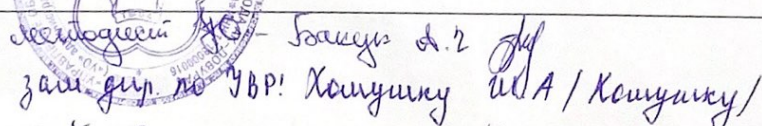 методист УО - Бакук А.Ч
зам дир. по УВР: Хомушку Ш А / Хомушку /